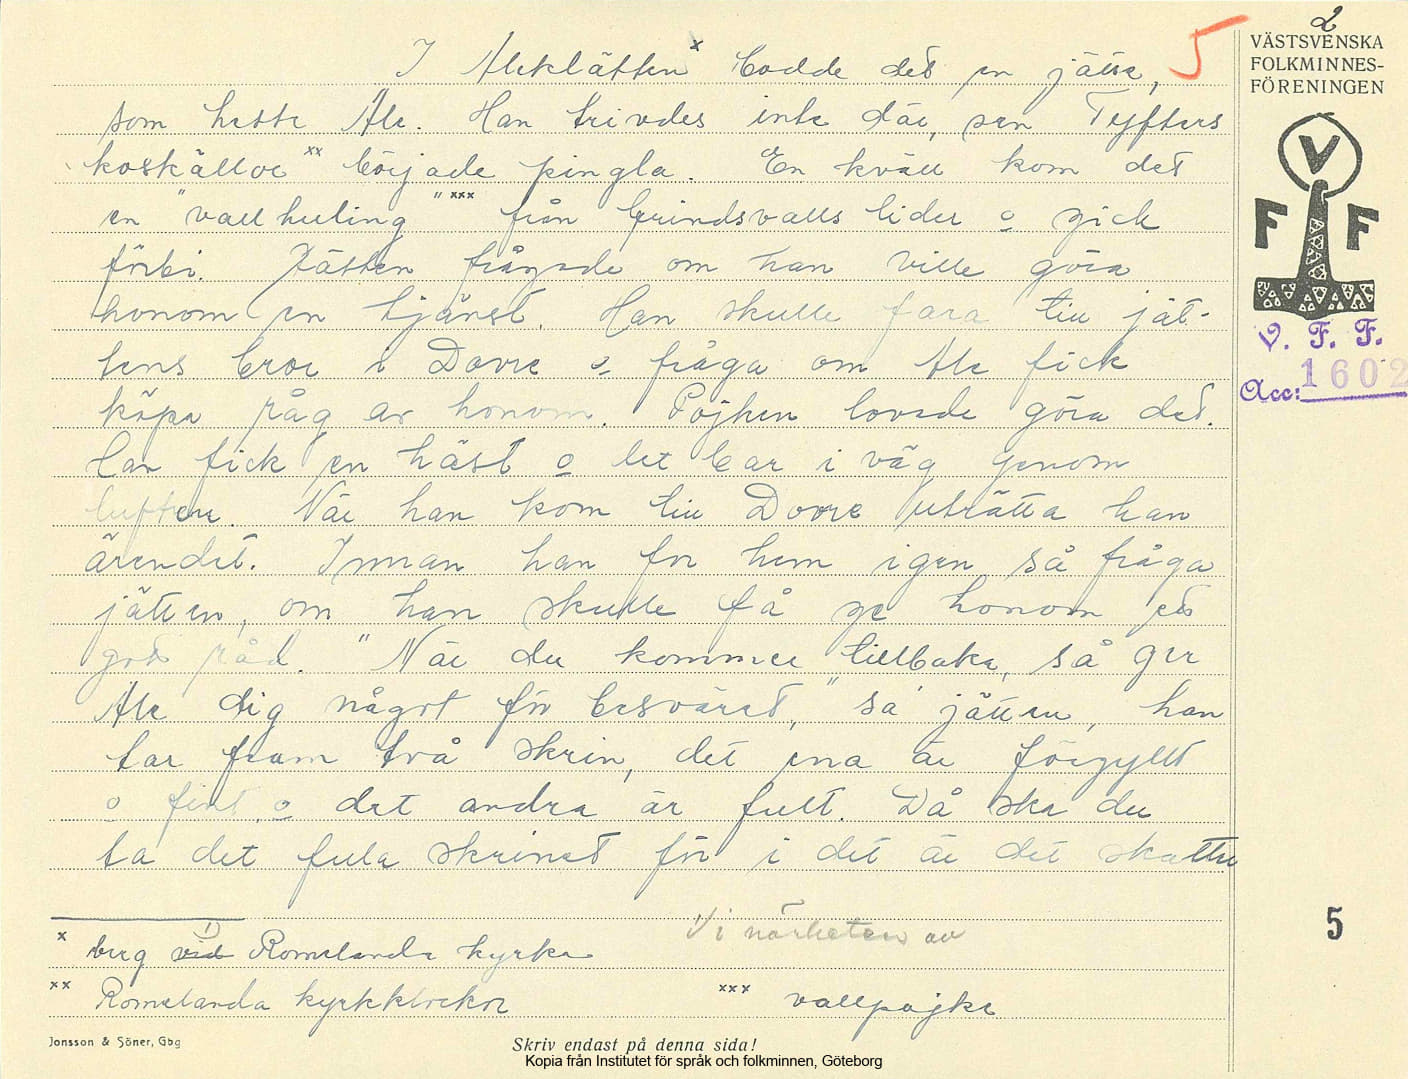 2
5
VÄSTSVENSKA
FOLKMINNES-
FÖRENINGEN
V
F F
V. F. F.
Acc: 1602
I Aleklätten x bodde det en jätte,
som hette Ale. Han trivdes inte där, sen Tyfters
koskällor xx började pingla. En kväll kom det
en "vallhuling" xxx från Grindsvalls lider o gick
förbi. Jätten frågade om han ville göra
honom en tjänst. Han skulle fara till jät-
tens bror i Dovre o fråga om Ale fick
köpa råg av honom. Pojken lovade göra det.
Han fick en häst o det bar i väg genom
luften. När han kom till Dovre uträtta han
ärendet. Innan han for hem igen så fråga
jätten, om han skulle få ge honom ett
gott råd. "När du kommer tillbaka, så ger
Ale dig något för besväret," sa jätten, han
tar fram två skrin, det ena är förgyllt
o fint, o det andra är fult. Då ska du
ta det fula skrinet för i det är det skatter
x berg vid 1) Romelanda kyrka
1) i närheten av
xx Romelanda kyrkklockor
xxx vallpojke
5
Jonsson & Söner, Gbg
Skriv endast på denna sida!
Kopia från Institutet för språk och folkminnen, Göteborg